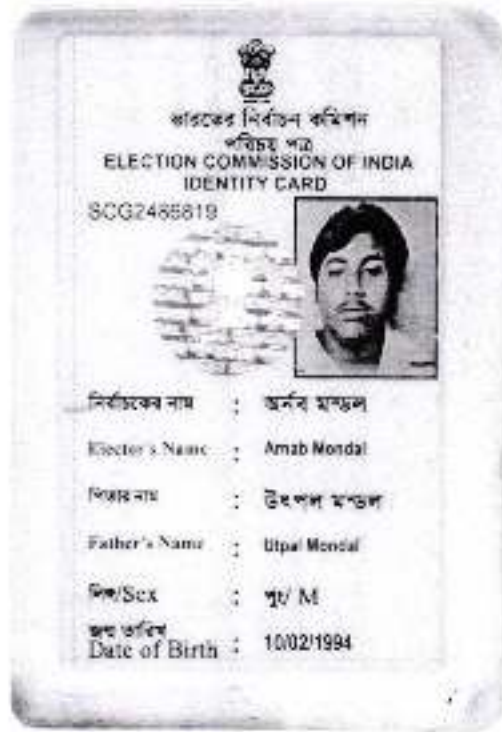 ভারতের নির্বাচন কমিশন
পরিচয় পত্র
ELECTION COMMISSION OF INDIA
IDENTITY CARD
SCG2486819
নির্বাচকের নাম : অর্নব মন্ডল
Elector's Name : Arnab Mondal
পিতার নাম : উৎপল মন্ডল
Father's Name : Utpal Mondal
লিঙ্গ/Sex : পুং/ M
জন্ম তারিখ
Date of Birth : 10/02/1994